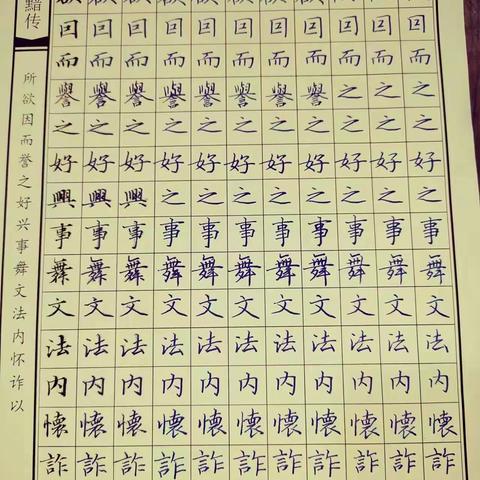 黯传
所欲因而誉之好兴事舞文法内怀诈以
欲欲欲欲欲欲欲欲欲欲欲
囙囙囙囙囙囙囙囙囙囙囙
而而而而而而而而而而而
譽譽譽譽譽譽譽譽之之之
之之之之之之之之之之之
好好好好好好好好好好好
興興興之之之之之之之之
事事事事事事事事事事事
舞舞舞舞舞舞舞舞舞舞舞
文文文文文文文文文文文
法法法法法法法法法法法
内内内内内内内内内内内
懷懷懷懷懷懷懷懷懷懷懷
詐詐詐詐詐詐詐詐詐詐詐